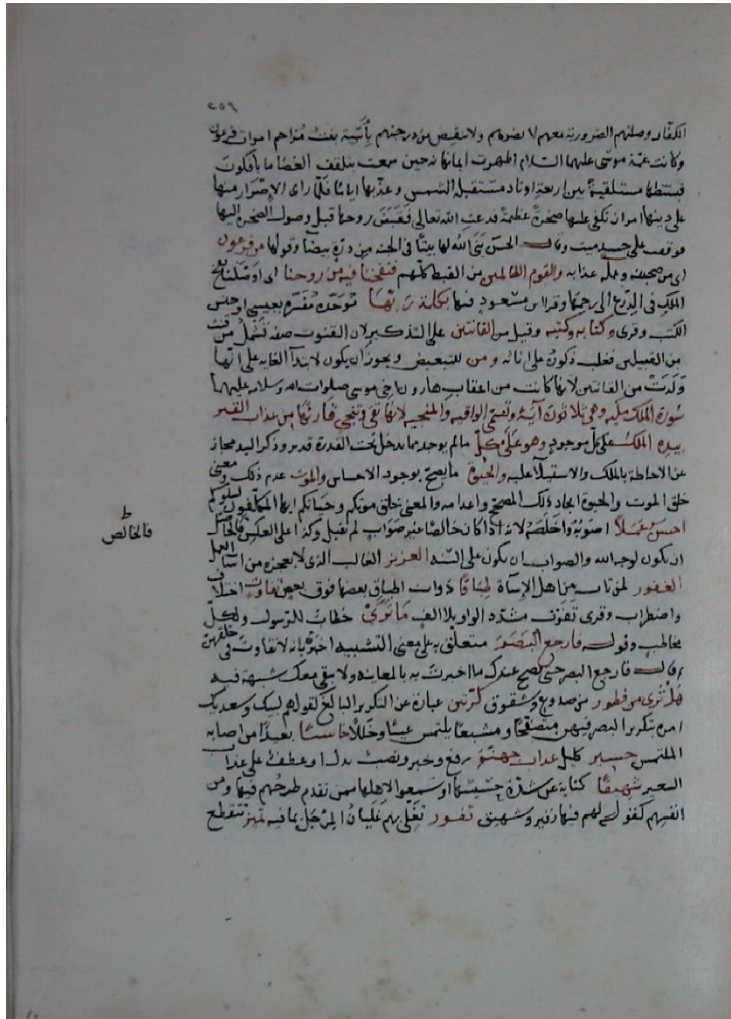 ٢٥٦
الكفار وصلتهم الضرورية معهم لا يضرهم ولا ينقص من درجتهم بآسية بنت مزاحم امراة فرعون
وكانت عمة موسى عليهما السلام اظهرت ايمانها به حين سمعت بتلقف العصا ما يافكون
فبسطها مستلقية بين اربعة اوتاد مستقبلة الشمس وعذبها اياما فلما راى الاصرار منها
على دينها امر ان تلقى عليها صخرة عظيمة فدعت الله تعالى فقبض روحها قبل وصول الصخرة اليها
فوقعت على جسد ميت وقال الحسن بنى الله لها بيتا في الجنة من درة بيضا وقولها من فرعون
اى من صحبته وعمله عذابه والقوم الظالمين من القبط كلهم فنفخنا فيه من روحنا اى اوصلنا نفخ
الملك في الدرع الى رحمها وقرا ابن مسعود فيها بكلمة ربها موحدة مفسرة بعيسى او جنس
الكتب وقرى وكتابه وكتبه وقيل من القانتين على التذكير لان القنوت صفة تشمل من قنت
من القبيلين فغلب ذكوره على اناثه ومن للتبعيض ويجوز ان يكون لابتدا الغاية على انها
ولدت من القانتين لانها كانت من اعقاب هارون اخي موسى صلوات الله وسلامه عليهما
سورة الملك مكية وهي ثلاثون آية وتسمى الواقية والمنجية لانها تقى وتنجى قارئها من عذاب القبر
بيده الملك على كل موجود وهو على كل مالم يوجد مما يدخل تحت القدرة قدير وذكر اليد مجاز
عن الاحاطة بالملك والاستيلا عليه والحيوة ما يصح بوجود الاحساس والموت عدم ذلك ومعنى
خلق الموت والحيوة ايجاد ذلك المصحح واعدامه والمعنى خلق موتكم وحياتكم ايها المكلفون ليبلوكم
احسن عملا اصوبه واخلصه لانه اذا كان خالصا غير صواب لم يقبل وكذا على العكس فالخالص
ط
فالخالص
ان يكون لوجه الله والصواب ان يكون على السنة العزيز الغالب الذي لا يعجزه من اساء العمل
الغفور لمن تاب من اهل الاساة طباقا ذوات اطباق بعضها فوق بعض تفاوت اختلاف
واضطراب وقرى تفوت مشدد الواو بلا الف ما ترى خطاب للرسول ولكل
مخاطب وقوله فارجع البصر متعلق به على معنى التسبيب اخبره بانه لا تفاوت في خلقهن
ثم قال فارجع البصر حتى يصح عندك ما اخبرت به بالمعاينة ولا يبقى معك شبهة فيه
هل ترى من فطور من صدوع وشقوق كرتين عبارة عن التكرير البالغ كقولهم لبيك وسعديك
امره بتكرير البصر فيهن متصفحا ومتتبعا يلتمس عيبا وخللا خاسئا بعيدا من اصابة
الملتمس حسير كليل عذاب جهنم رفع وخبر ونصب بدلا وعطف على عذاب
السعير شهيقا كناية عن شدة حسيسها او سمعوا لاهلها ممن تقدم طرحهم فيها ومن
انفسهم كقوله لهم فيها زفير وشهيق تفور تغلى بهم غليان المرجل بما فيه تميز تتقطع